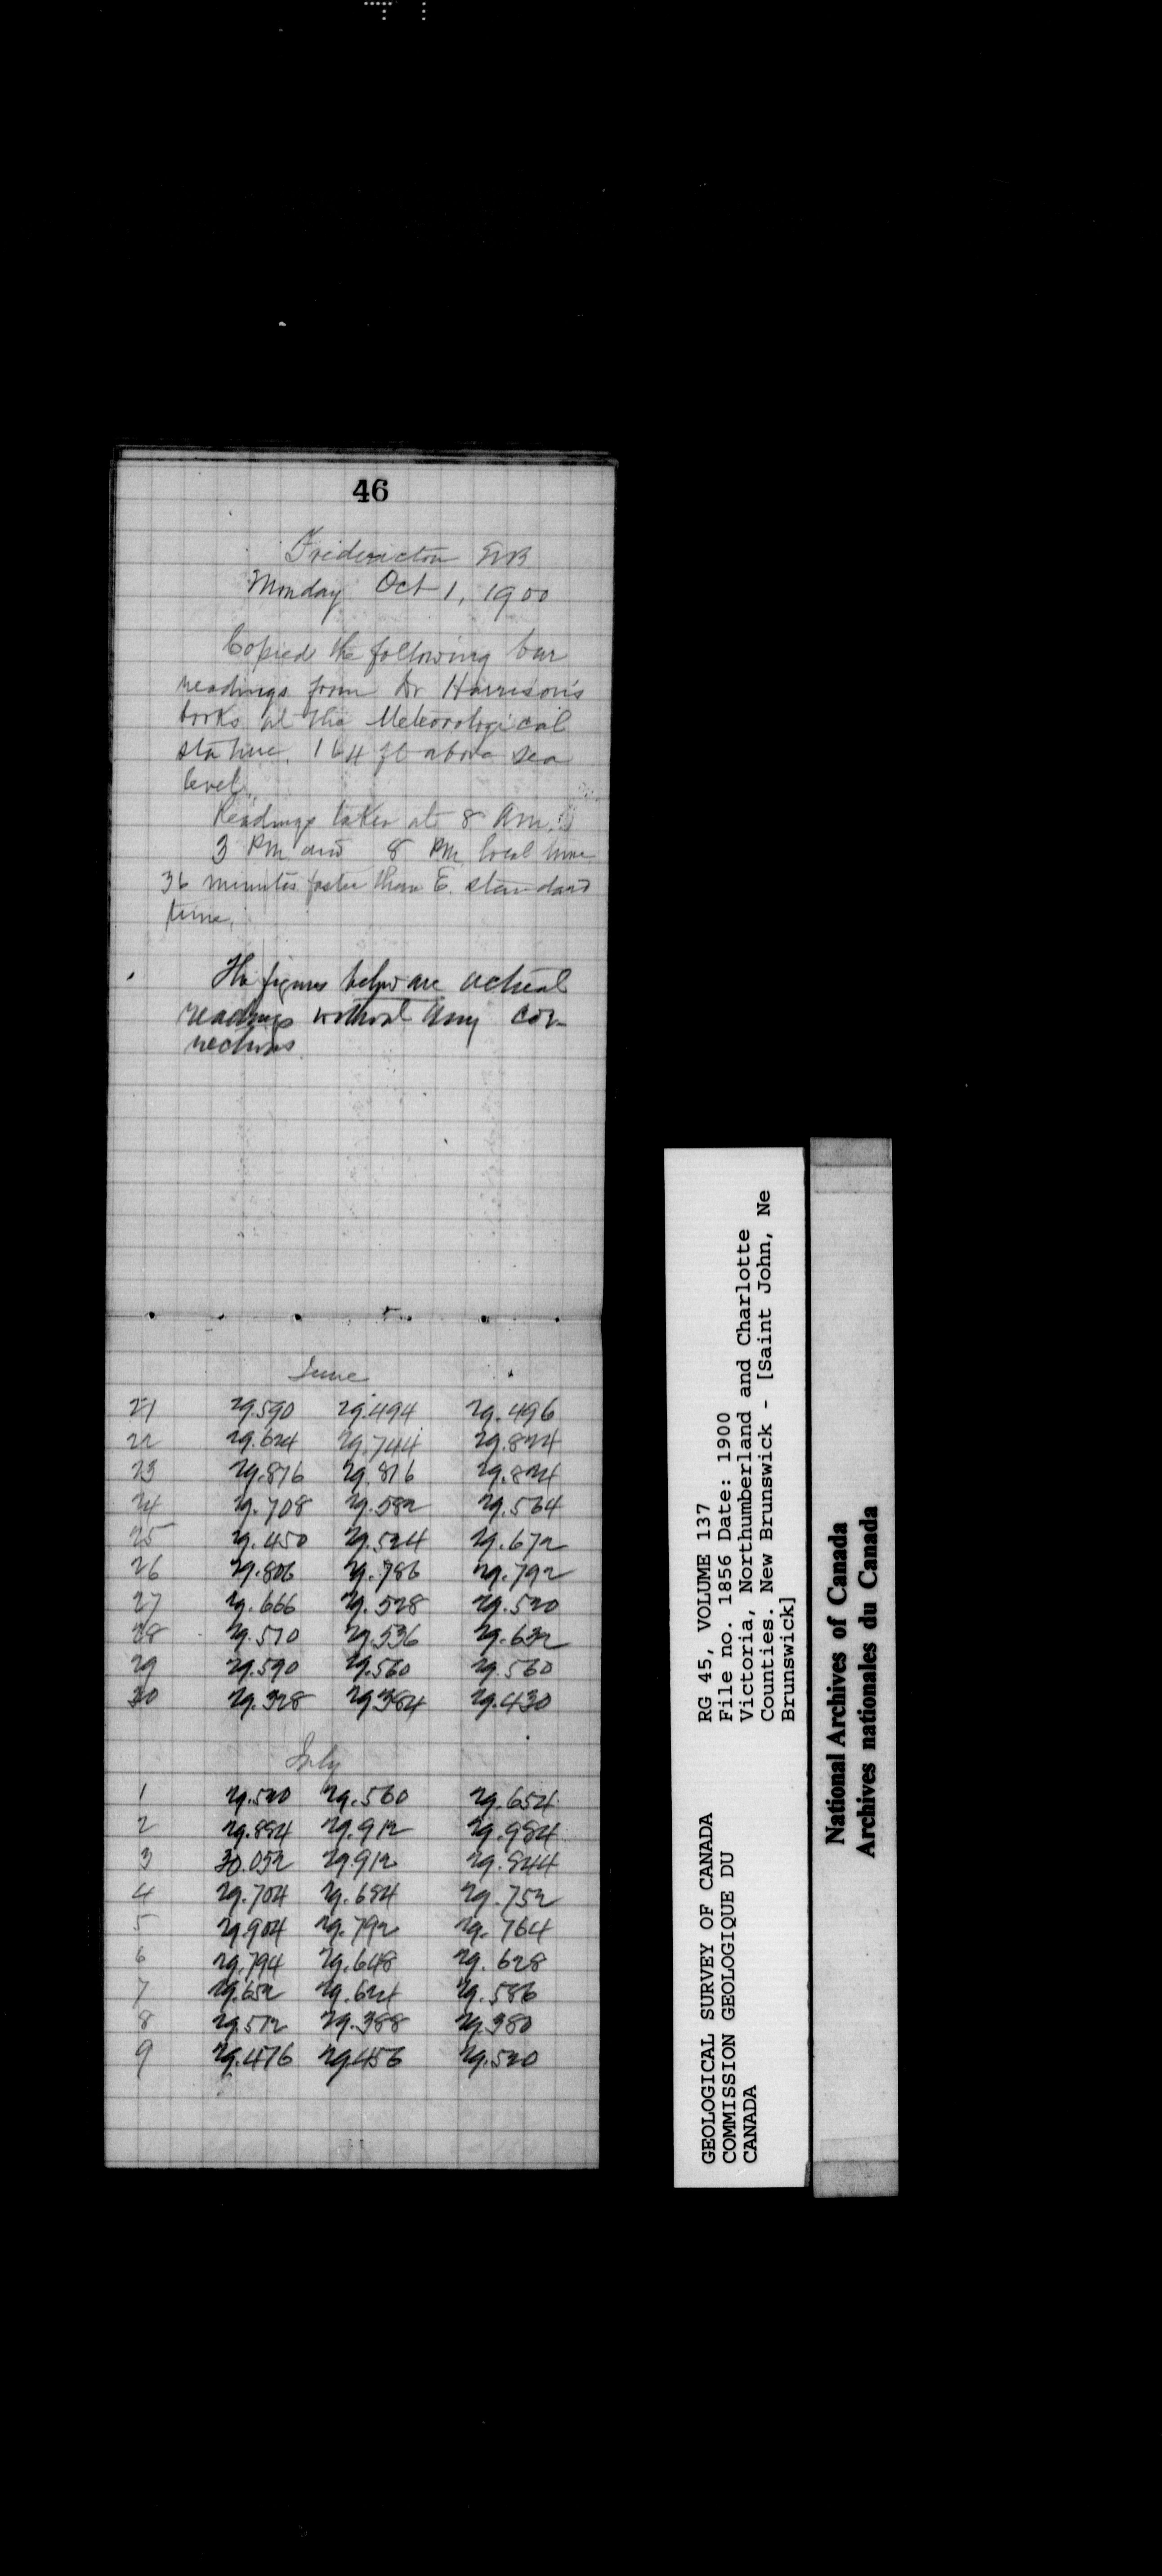 46
Fredericton NB
Monday Oct 1, 1900
Copied the following bar
readings from Dr Harrison's
books at the Meteorological
station. 164 ft above sea
level.
Readings taken at 8 am.
3 PM and 8 PM local time
36 minutes faster than E. standard
time.
The figures below are actual
readings without any cor-
rections.
June
21 29.590 29.494 29.496
22 29.624 29.744 29.824
23 29.876 29.816 29.824
24 29.708 29.582 29.564
25 29.450 29.524 29.672
26 29.806 29.786 29.792
27 29.666 29.528 29.520
28 29.510 29.536 29.632
29 29.590 29.560 29.560
30 29.328 29.384 29.430
July
1 29.520 29.560 29.654
2 29.884 29.912 29.984
3 30.052 29.912 29.844
4 29.704 29.684 29.752
5 29.904 29.792 29.764
6 29.794 29.648 29.628
7 29.652 29.624 29.586
8 29.512 29.388 29.380
9 29.476 29.456 29.520
GEOLOGICAL SURVEY OF CANADA
COMMISSION GEOLOGIQUE DU
CANADA
RG 45, VOLUME 137
File no. 1856 Date: 1900
Victoria, Northumberland and Charlotte
Counties. New Brunswick - [Saint John, Ne
Brunswick]
National Archives of Canada
Archives nationales du Canada